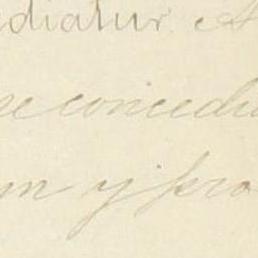 ediatur. A
re concedia
m y pro